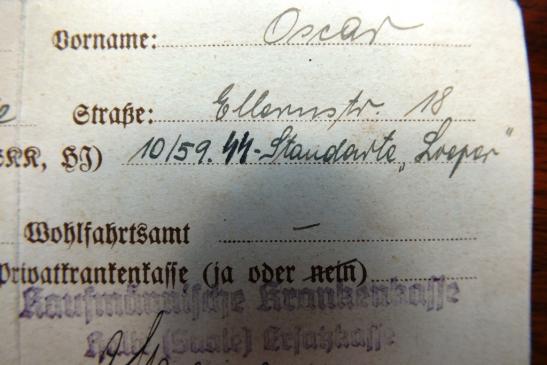 Vorname: Oscar
Straße: Ellernstr. 18
KK, HJ) 10/59. SS-Standarte „Loeper“
Wohlfahrtsamt –
Privatkrankenkasse (ja oder nein)
Kaufmännische Krankenkasse
Halle (Saale) Ersatzkasse